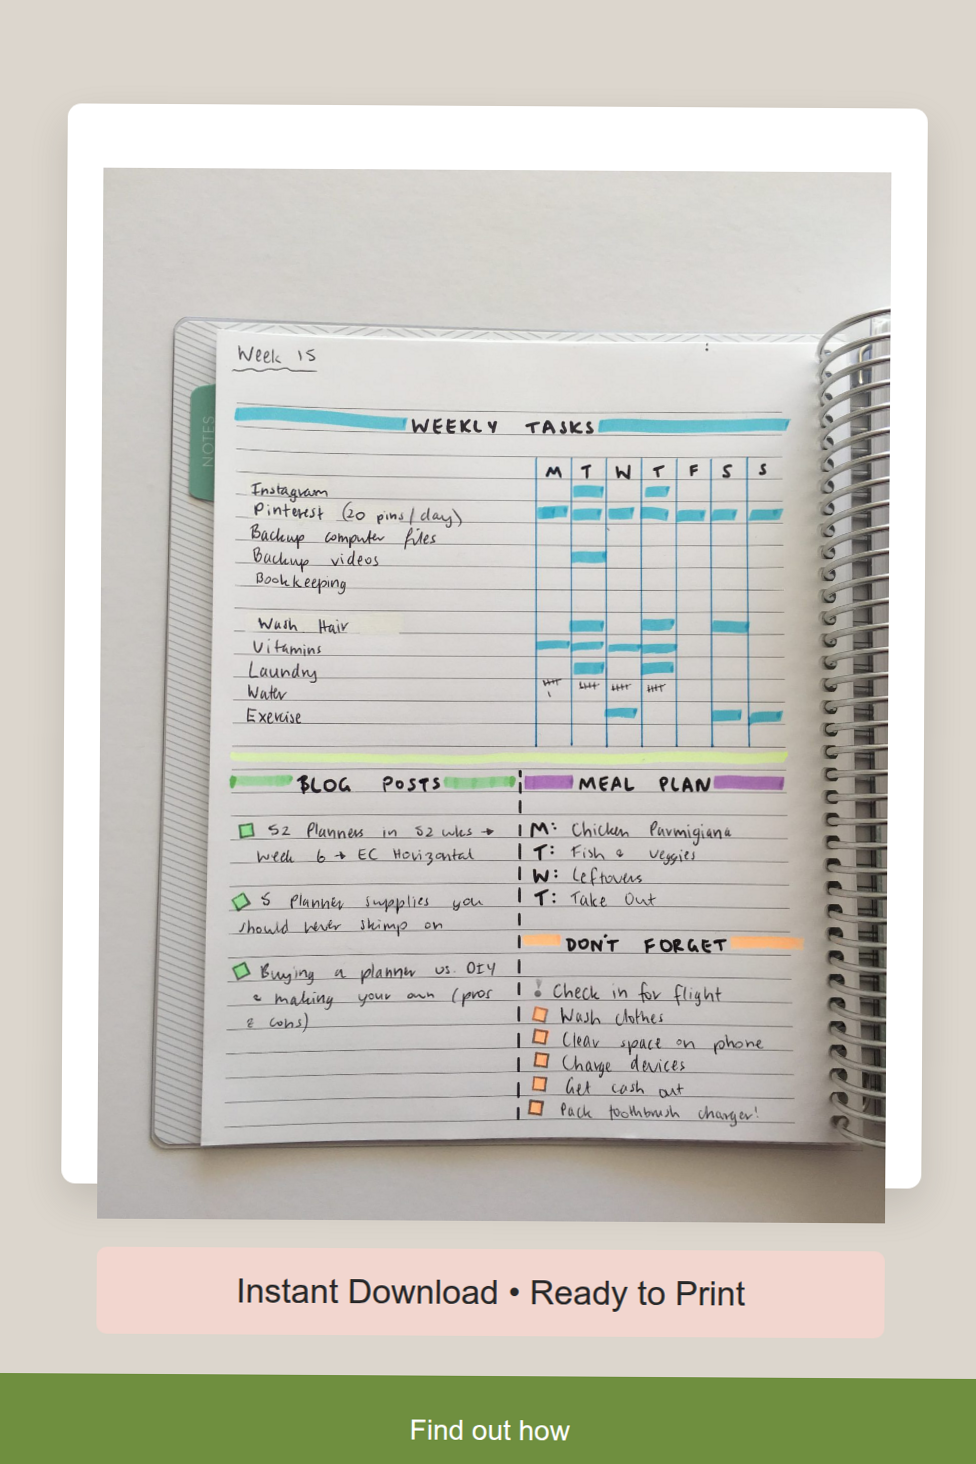 Week 15
NOTES
WEEKLY TASKS
M T W T F S S
Instagram
Pinterest (20 pins/day)
Backup computer files
Backup videos
Bookkeeping
Wash Hair
Vitamins
Laundry
Water
Exercise
BLOG POSTS
52 Planners in 52 wks →
Week 6 → EC Horizontal
5 Planner supplies you
should never skimp on
Buying a planner vs. DIY
& making your own (pros
& cons)
MEAL PLAN
M: Chicken Parmigiana
T: Fish & veggies
W: Leftovers
T: Take Out
DON'T FORGET
! Check in for flight
Wash clothes
Clear space on phone
Charge devices
Get cash out
Pack toothbrush charger!
Instant Download • Ready to Print
Find out how